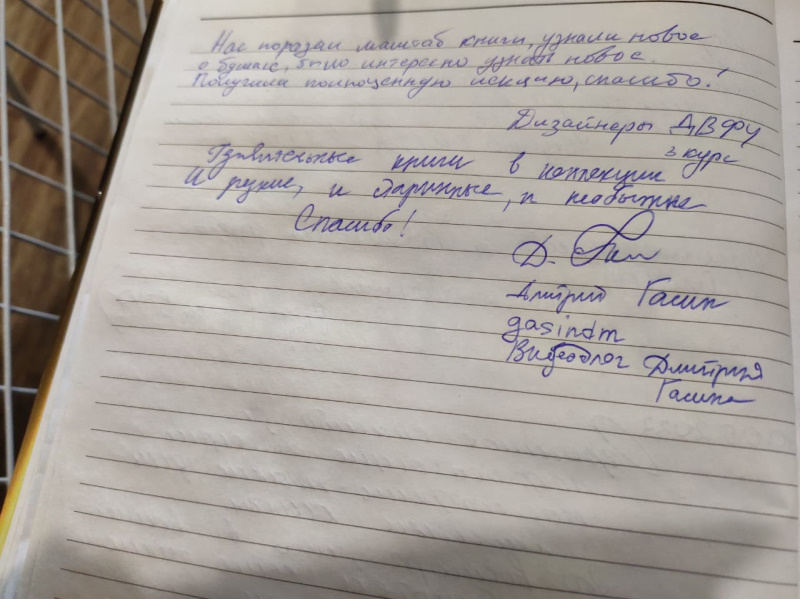 Нас поразил маштаб книги, узнали новое
о бумаге, было интересно узнать новое.
Получили полноценную лекцию, спасибо!
Дизайнеры ДВФУ
3 курс
Удивительные книги в коллекции
И редкие, и старинные, и необычные
Спасибо!
Д.
Дмитрий Гасин
gasindm
Видеоблог Дмитрия
Гасина